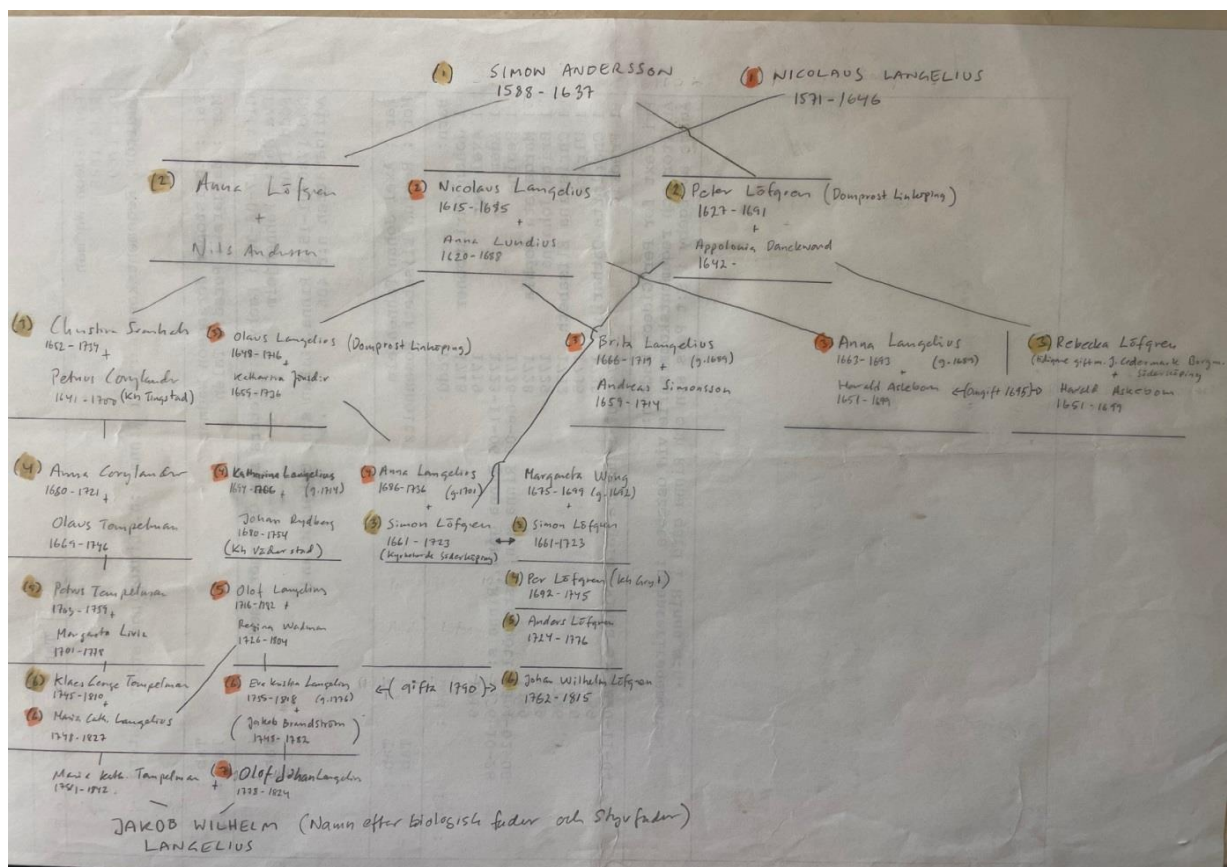 (1) SIMON ANDERSSON
1588 - 1637
(1) NICOLAUS LANGELIUS
1571 - 1646
(2) Anna Löfgren
+
Nils Andersson
(2) Nicolaus Langelius
+
Anna Lundius
1620 - 1688
(2) Peter Löfgren (Domprost Linköping)
1627 - 1691
+
Appolonia Danckward
1642 -
(3) Christina
1652 - 1737 +
Petrus Corylander
(Kh Tingstad)
(3) Olaus Langelius (Domprost Linköping)
1648 - 1716
+
1659 - 1736
(3) Brita Langelius
1666 - 1719 + (g. 1689)
Andreas Simonsson
1659 - 1714
(3) Anna Langelius
1663 - 1693 + (g. 1689)
Harald Askebom <-(omgift 1695)->
1651 - 1699
(3) Rebecka Löfgren
+
Harald Askebom
1651 - 1699
(4) Anna Corylander
1680 - 1721
+
Olaus Tempelman
(4) Katharina Langelius
+ (g. 1714)
Johan Rydberg
1680 - 1754
(Kh Väderstad)
(4) Anna Langelius
1686-1736 (g. 1701)
+
(3) Simon Löfgren
1661 - 1723
(Kyrkoherde Söderköping)
Margareta Wong
1675 - 1699 (g. 1692)
+
(3) Simon Löfgren
1661-1723
(4) Per Löfgren (Kh Gryt)
1692 - 1745
(5) Anders Löfgren
1724 - 1776
(5) Petrus Tempelman
1705 - 1759 +
Margareta Livin
1701 - 1778
(5) Olof Langelius
+
Regina Wadman
1726 - 1804
(6) Klaes George Tempelman
1745 - 1810 +
(6) Maria Cath. Langelius
1748 - 1827
(6) Eva Kristina Langelius
1755 - 1818 (g. 1776)
+
(Jakob Brandström)
1745 - 1782
<-(gifta 1790)->
(6) Johan Wilhelm Löfgren
1752 - 1815
Maria Kath. Tempelman
1781 - 1842
+
(7) Olof Johan Langelius
1778 - 1824
JAKOB WILHELM (Namn efter biologisk fader och Styvfader)
LANGELIUS